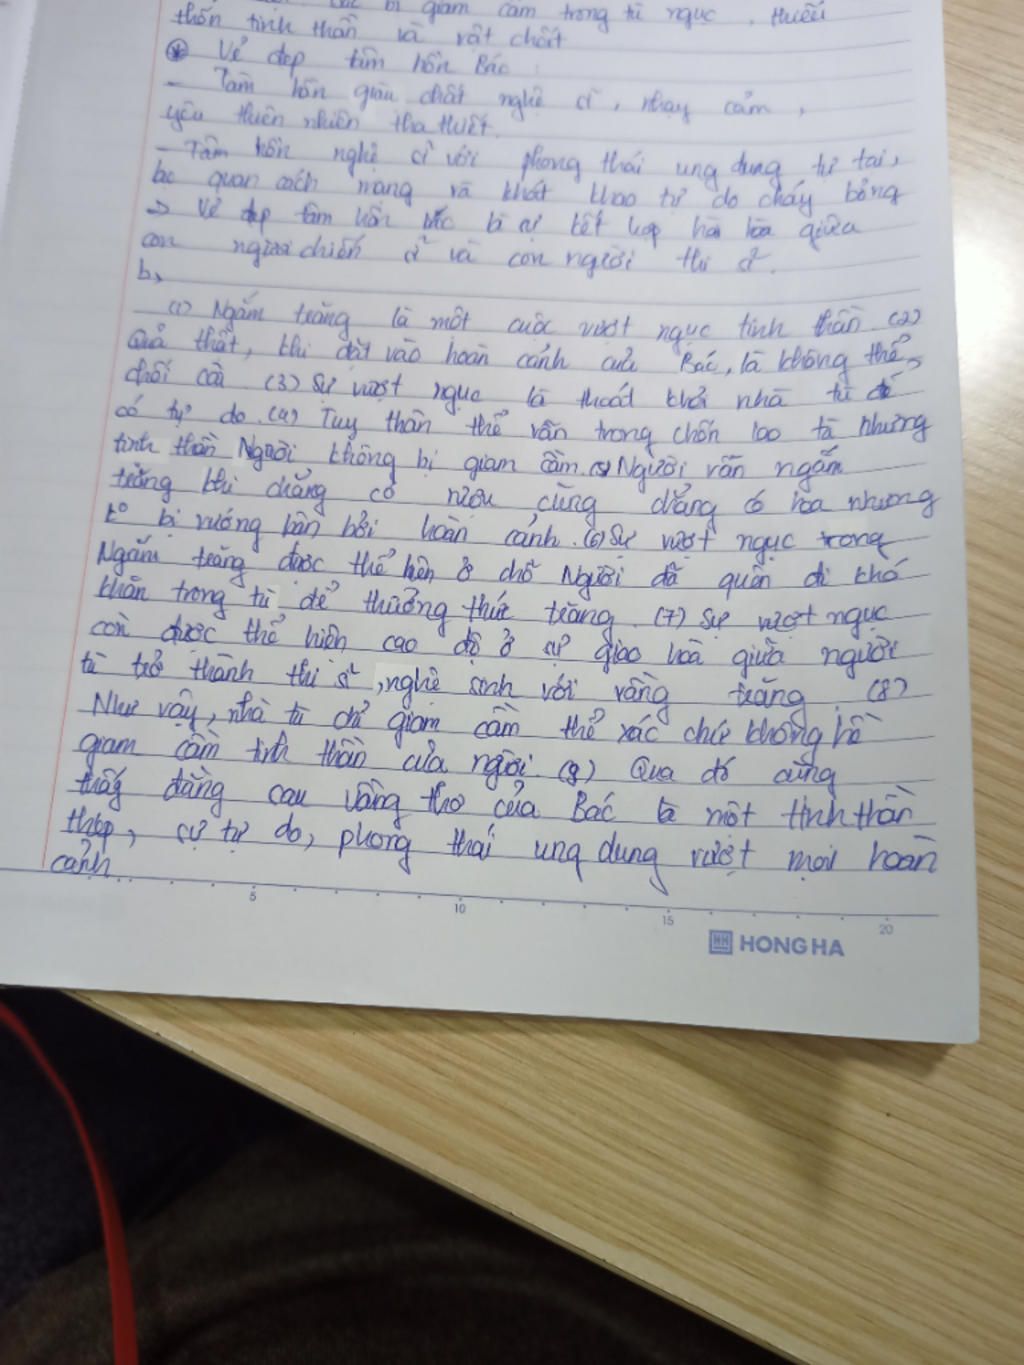 bị giam cầm trong tù ngục, thiếu
thốn tinh thần và vật chất
* Vẻ đẹp tâm hồn Bác:
- Tâm hồn giàu chất nghệ sĩ, nhạy cảm,
yêu thiên nhiên tha thiết.
- Tâm hồn nghệ sĩ với phong thái ung dung tự tại,
lạc quan cách mạng và khát khao tự do cháy bỏng
=> Vẻ đẹp tâm hồn Bác là sự kết hợp hài hòa giữa
con người chiến sĩ và con người thi sĩ.
b,
(1) Ngắm trăng là một cuộc vượt ngục tinh thần (2)
Quả thật, khi đặt vào hoàn cảnh của Bác, là không thể
chối cãi (3) Sự vượt ngục là thoát khỏi nhà tù để
có tự do. (4) Tuy thân thể vẫn trong chốn lao tù nhưng
tinh thần Người không bị giam cầm. (5) Người vẫn ngắm
trăng khi chẳng có rượu cũng chẳng có hoa nhưng
bị vướng bận bởi hoàn cảnh. (6) Sự vượt ngục trong
Ngắm trăng được thể hiện ở chỗ Người đã quên đi khó
khăn trong tù để thưởng thức trăng. (7) Sự vượt ngục
còn được thể hiện cao độ ở sự giao hoà giữa người
tù trở thành thi sĩ, nghệ sinh với vầng trăng. (8)
Như vậy, nhà tù chỉ giam cầm thể xác chứ không hề
giam cầm tinh thần của người. (9) Qua đó cũng
thấy đằng sau vầng thơ của Bác là một tinh thần
thép, sự tự do, phong thái ung dung vượt mọi hoàn
cảnh
5 10 15 20
HH HONG HA